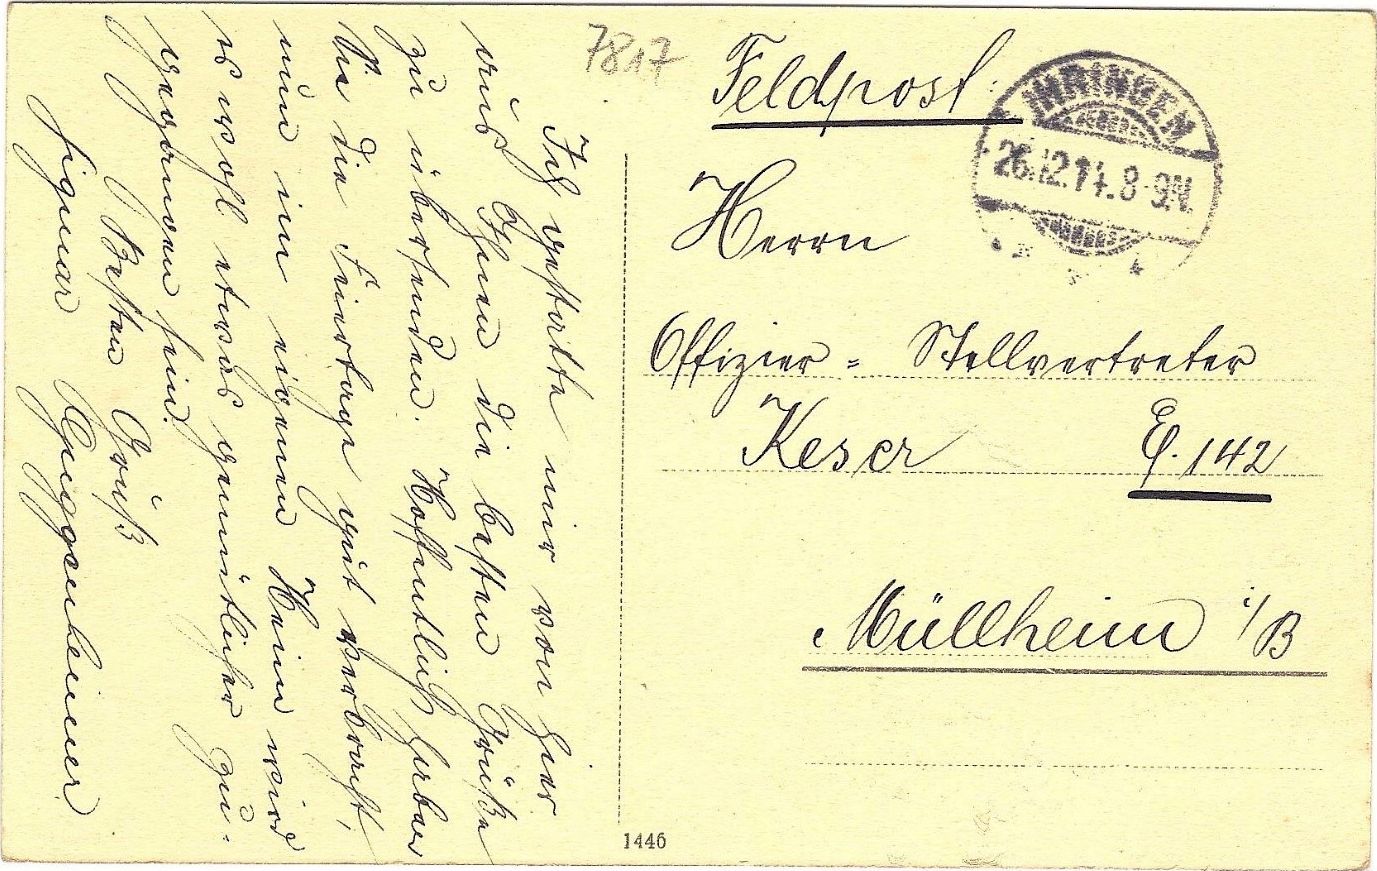 7817
Feldpost.
IHRINGEN
26.12.14. 8-9N.
Herrn
Offizier = Stellvertreter
Keser E. 142
Müllheim i/B
Ich gestatte mir von hier
aus Ihnen die besten Grüße
zu übersenden. Hoffentlich haben
Sie die Feiertage gut verbracht,
nun im eigenen Heim wird
es wohl etwas gemütlicher zu-
gegangen sein.
Besten Gruß
Sigmar Guggenheimer.
1446